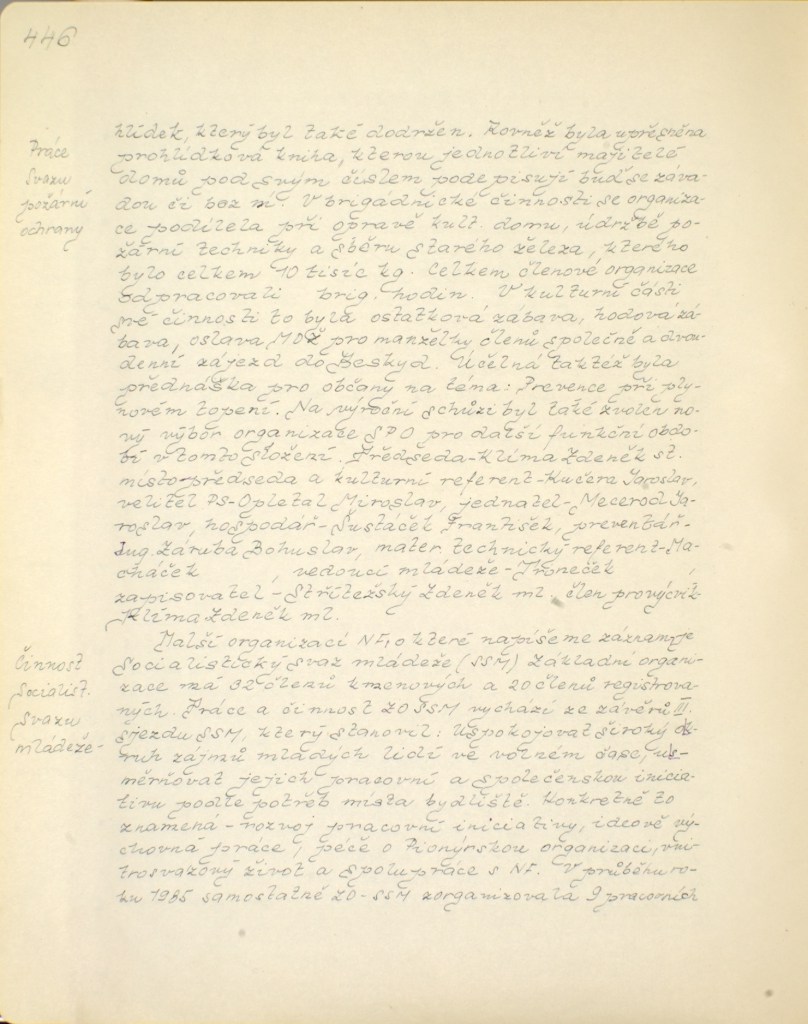 446
Práce
Svazu
požární
ochrany
hlídek, který byl také dodržen. Rovněž byla upřesněna
prohlídková kniha, kterou jednotliví majitelé
domů pod svým číslem podepisují buď se záva-
dou či bez ní. V brigádnické činnosti se organiza-
ce podílela při opravě kult. domu, údržbě po-
žární techniky a sběru starého železa, kterého
bylo celkem 10 tisíc kg. Celkem členové organizace
odpracovali brig. hodin. V kulturní části
své činnosti to byla ostatková zábava, hodová zá-
bava, oslava MDŽ pro manželky členů společně a dvou-
denní zájezd do Beskyd. Účelná taktéž byla
přednáška pro občany na téma: Prevence při ply-
novém topení. Na výroční schůzi byl také zvolen no-
vý výbor organizace SPO pro další funkční obdo-
bí v tomto složení. Předseda - Klíma Zdeněk st.
místo-předseda a kulturní referent - Kučera Jaroslav,
velitel PS - Opletal Miroslav, jednatel - Mecerod Ja-
roslav, hospodář - Šustáček František, preventář -
Ing. Záruba Bohuslav, mater. technický referent - Ma-
cháček , vedoucí mládeže - Troneček ,
zapisovatel - Střítezský Zdeněk ml. člen pro výcvik -
Klíma Zdeněk ml.
Činnost
Socialist.
Svazu
mládeže -
Další organizací NF, o které napíšeme záznam je
Socialistický svaz mládeže (SSM) Základní organi-
zace má 32 členů kmenových a 20 členů registrova-
ných. Práce a činnost ZO SSM vychází ze závěrů III.
sjezdu SSM, který stanovil: Uspokojovat široký ok-
ruh zájmů mladých lidí ve volném čase, us-
měrňovat jejich pracovní a společenskou inicia-
tivu podle potřeb místa bydliště. Konkretně to
znamená - rozvoj pracovní iniciativy, ideově vý-
chovná práce, péče o Pionýrskou organizaci, vni-
trosvazový život a spolupráce s NF. V průběhu ro-
ku 1985 samostatně ZO - SSM zorganizovala 9 pracovních